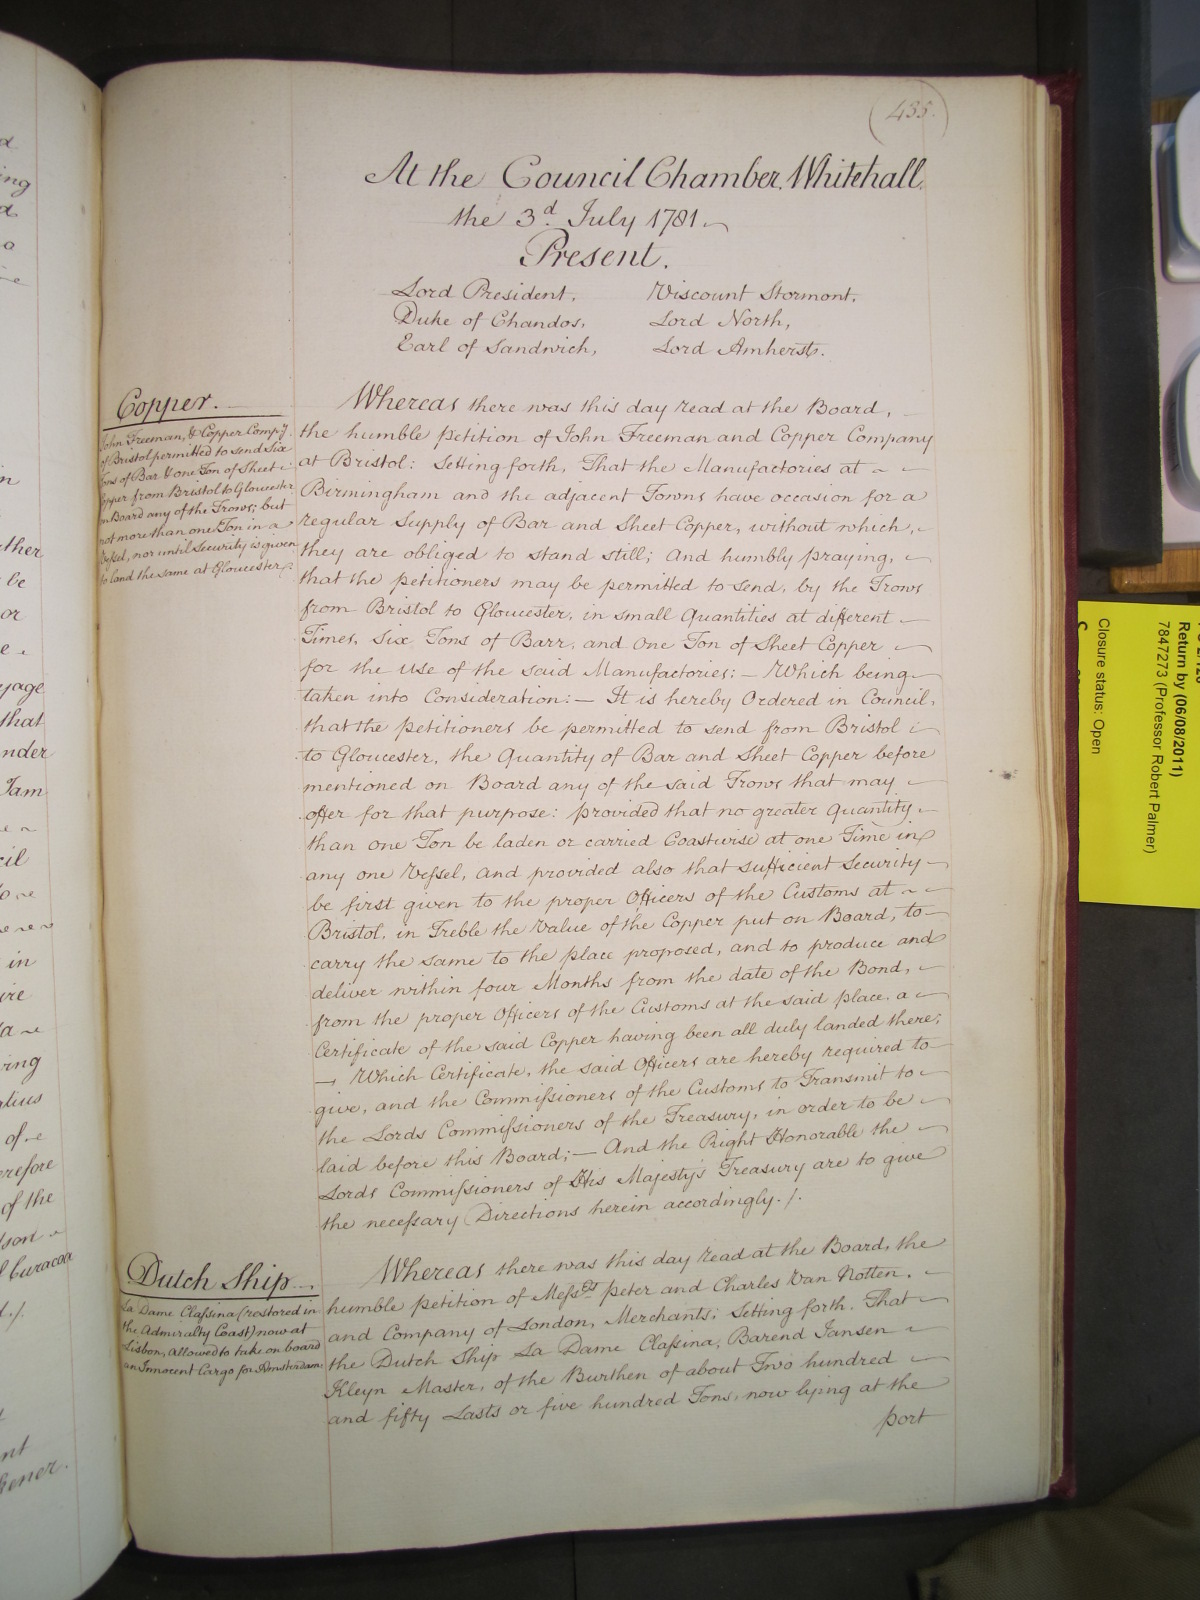 435.
At the Council Chamber, Whitehall,
the 3d. July 1781.
Present.
Lord President, Viscount Stormont,
Duke of Chandos, Lord North,
Earl of Sandwich, Lord Amherst.
Copper.
John Freeman, & Copper Compy.
of Bristol permitted to send Six
Tons of Bar & one Ton of Sheet
Copper from Bristol to Gloucester
on Board any of the Trows; but
not more than one Ton in a
Vessel, nor until Security is given
to land the same at Gloucester.
Whereas there was this day read at the Board,
the humble petition of John Freeman and Copper Company
at Bristol: Setting forth, That the Manufactories at
Birmingham and the adjacent Towns have occasion for a
regular Supply of Bar and Sheet Copper, without which,
they are obliged to stand still; And humbly praying,
that the petitioners may be permitted to send, by the Trows
from Bristol to Gloucester, in small Quantities at different
Times, Six Tons of Barr, and One Ton of Sheet Copper
for the use of the said Manufactories: — Which being
taken into Consideration: — It is hereby Ordered in Council,
that the petitioners be permitted to send from Bristol
to Gloucester, the Quantity of Bar and Sheet Copper before
mentioned on Board any of the said Trows that may
offer for that purpose: provided that no greater Quantity
than one Ton be laden or carried Coastwise at one Time in
any one Vessel, and provided also that sufficient Security
be first given to the proper Officers of the Customs at
Bristol, in Treble the Value of the Copper put on Board, to
carry the same to the place proposed, and to produce and
deliver within four Months from the date of the Bond,
from the proper Officers of the Customs at the said place, a
Certificate of the said Copper having been all duly landed there;
— Which Certificate, the said Officers are hereby required to
give, and the Commissioners of the Customs to Transmit to
the Lords Commissioners of the Treasury, in order to be
laid before this Board; — And the Right Honorable the
Lords Commissioners of His Majesty's Treasury are to give
the necessary Directions herein accordingly. /.
Dutch Ship.
La Dame Classina (restored in
the Admiralty Coast) now at
Lisbon, allowed to take on board
an Innocent Cargo for Amsterdam
Whereas there was this day read at the Board, the
humble petition of Messrs. Peter and Charles Van Notten,
and Company of London, Merchants; Setting forth. That
the Dutch Ship La Dame Classina, Barend Jansen
Kleyn Master, of the Burthen of about Two hundred
and fifty Lasts or five hundred Tons, now lying at the
port
ather
be
or
yage
that
nder
Tam
in
of
erefore
of the
Curacoa
Return by (06/08/2011)
7847273 (Professor Robert Palmer)
Closure status: Open